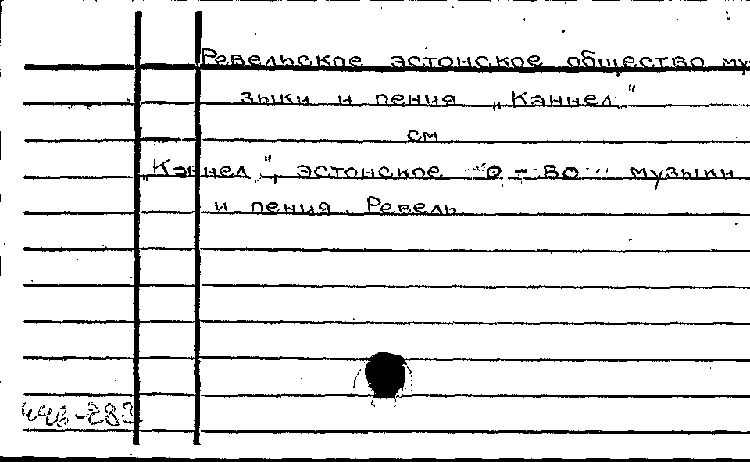 Ревельское эстонское общество му
зыки и пения „Каннел"
см
„Каннел", эстонское о-во музыки
и пения. Ревель
446-283